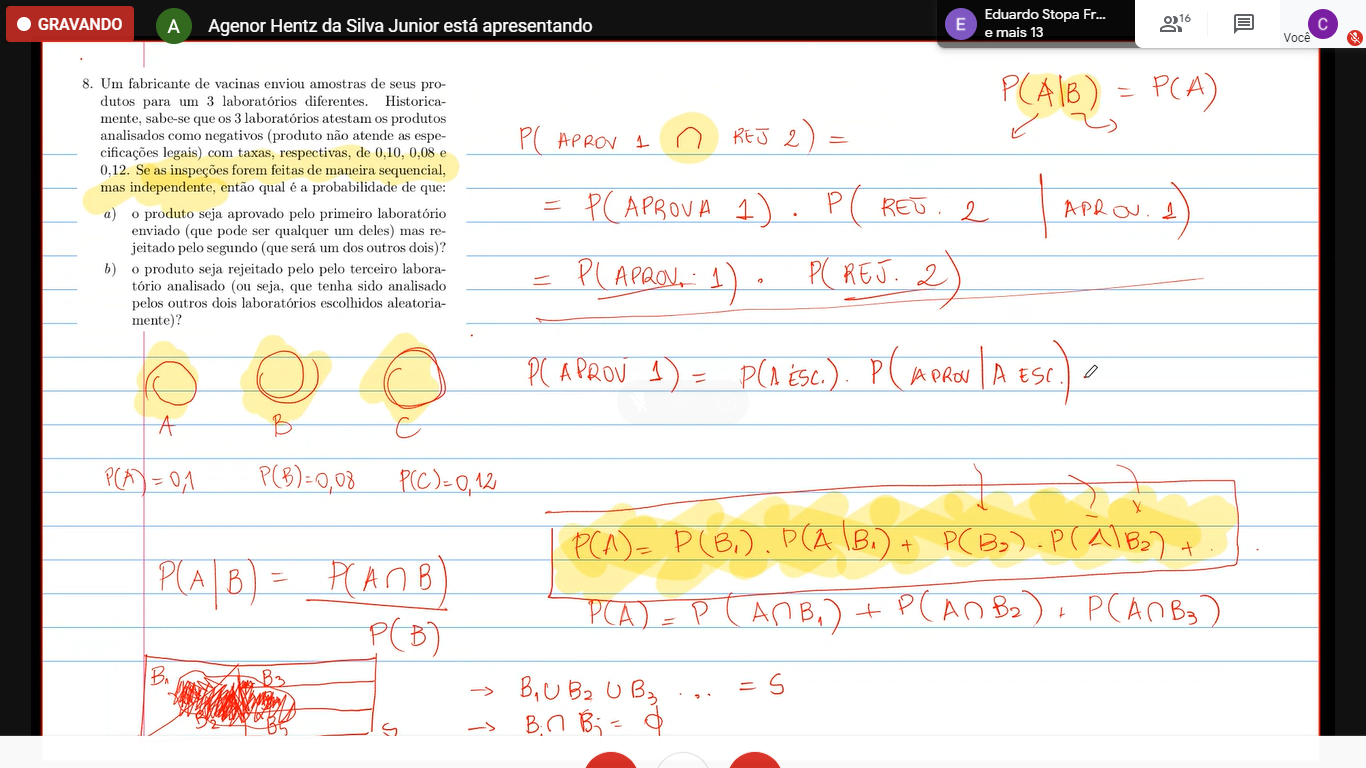 GRAVANDO
A
Agenor Hentz da Silva Junior está apresentando
E
Eduardo Stopa Fr...
e mais 13
16
Você
C
8. Um fabricante de vacinas enviou amostras de seus pro-
dutos para um 3 laboratórios diferentes. Historica-
mente, sabe-se que os 3 laboratórios atestam os produtos
analisados como negativos (produto não atende as espe-
cificações legais) com taxas, respectivas, de 0,10, 0,08 e
0,12. Se as inspeções forem feitas de maneira sequencial,
mas independente, então qual é a probabilidade de que:
a) o produto seja aprovado pelo primeiro laboratório
enviado (que pode ser qualquer um deles) mas re-
jeitado pelo segundo (que será um dos outros dois)?
b) o produto seja rejeitado pelo pelo terceiro labora-
tório analisado (ou seja, que tenha sido analisado
pelos outros dois laboratórios escolhidos aleatoria-
mente)?
P(A|B) = P(A)
P( APROV 1 ∩ REJ 2) =
= P(APROVA 1) . P( REJ. 2 | APROV. 1)
= P(APROV. 1) . P(REJ. 2)
P(APROV 1) = P(A ESC.) . P(APROV | A ESC.)
A B C
P(A)=0,1 P(B)=0,08 P(C)=0,12
P(A)= P(B₁) . P(A|B₁) + P(B₂) . P(A|B₂) + . .
P(A|B) = P(A∩B)
P(B)
P(A) = P(A∩B₁) + P(A∩B₂) + P(A∩B₃)
B₁ B₃
B₂
→ B₁ ∪ B₂ ∪ B₃ ... = S
→ Bᵢ ∩ Bⱼ = ϕ